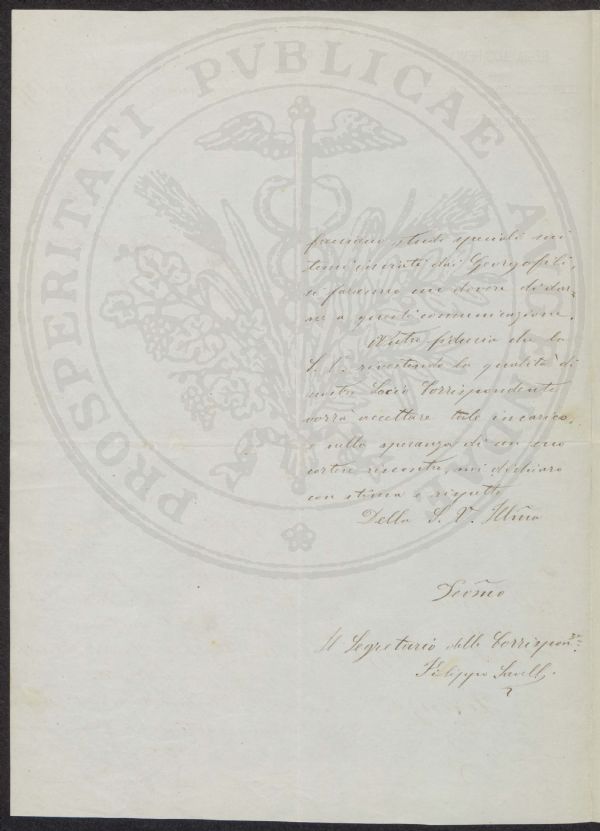 PROSPERITATI PVBLICAE AVGENDAE
facciano studi speciali sui
temi enerati dai Georgofili,
si faranno un dovere di dar-
ne a questi comunicazione.
Nutro fiducia che la
S. V. rivestendo la qualità di
nostro Socio Corrispondente
vorrà accettare tale incarico,
e nella speranza di un suo
cortese riscontro, mi dichiaro
con stima e rispetto
Della S. V. Illma
Devmo
Il Segretario delle Corrispondze
Filippo